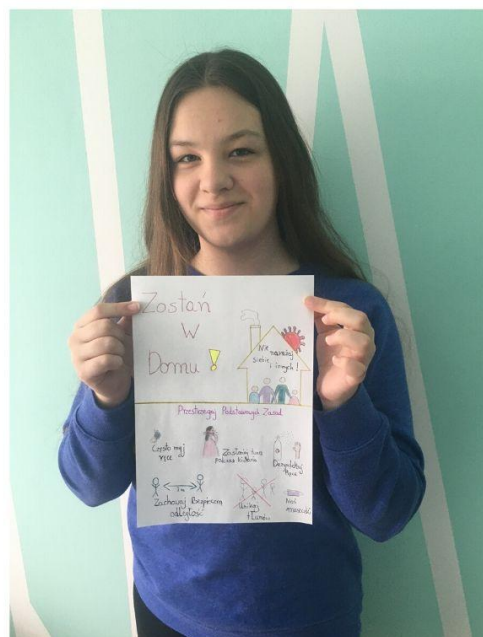 Zostań
W
Domu!
Nie narażaj
siebie
i innych!
Przestrzegaj Podstawowych Zasad
Często myj
ręce
Zasłaniaj twarz
podczas kichania
Dezynfekuj
ręce
Zachowaj Bezpieczną
odległość
Unikaj
tłumów
Noś
maseczki